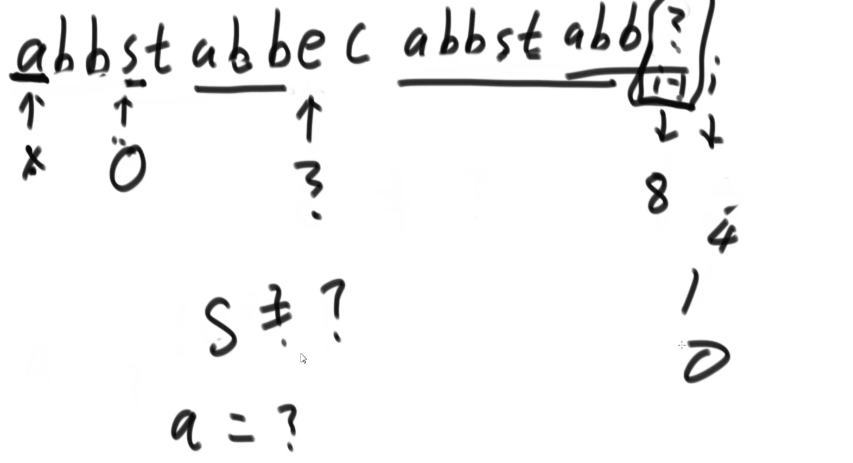 abbst abbe c abbst abb ?
i-1 i
x 0 ? 8
4
s ≠ ? 1
0
a = ?